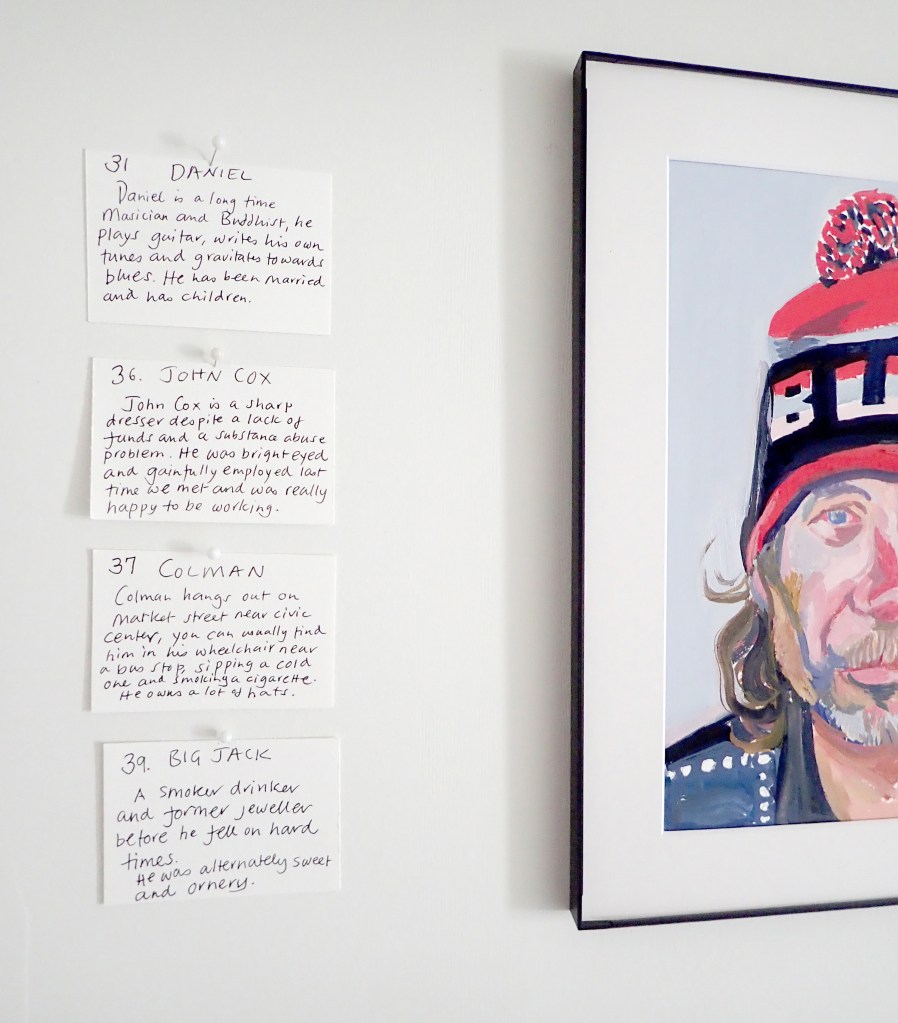 31 DANIEL
Daniel is a long time
Musician and Buddhist, he
plays guitar, writes his own
tunes and gravitates towards
blues. He has been married
and has children.
36. JOHN COX
John Cox is a sharp
dresser despite a lack of
funds and a substance abuse
problem. He was bright eyed
and gainfully employed last
time we met and was really
happy to be working.
37 COLMAN
Colman hangs out on
Market street near civic
center, you can usually find
him in his wheelchair near
a bus stop, sipping a cold
one and smoking a cigarette.
He owns a lot of hats.
39. BIG JACK
A smoker drinker
and former jeweller
before he fell on hard
times.
He was alternately sweet
and ornery.